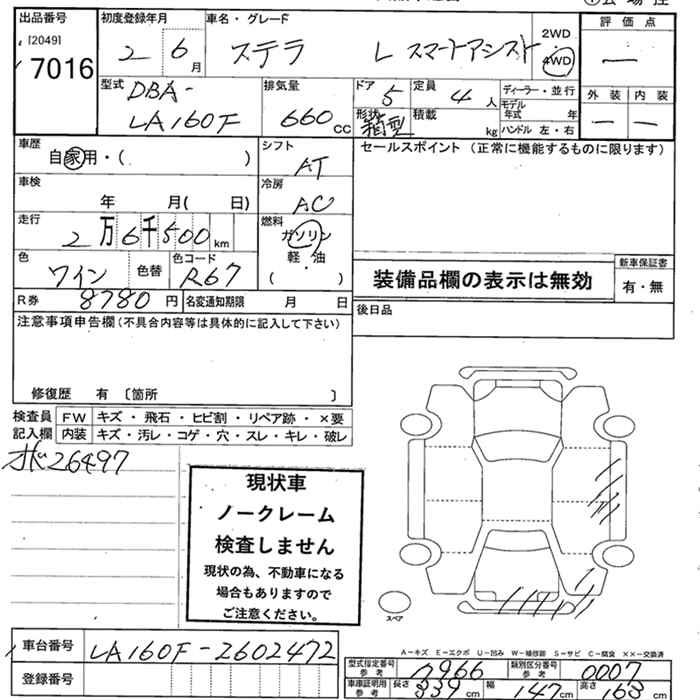 出品番号
[2049]
7016
初度登録年月
2 6 月
車名・グレード
ステラ L スマートアシスト
2WD
4WD
評価点
—
外装 内装
— —
型式
DBA-
LA160F
排気量
660 cc
ドア
5
定員
4 人
形状
箱型
積載
kg
ディーラー・並行
モデル
年式 年
ハンドル 左・右
車歴
自家用・( )
シフト
AT
セールスポイント (正常に機能するものに限ります)
車検
年 月( 日)
冷房
AC
走行
2万6千500 km
燃料
ガソリン
軽油
( )
色
ワイン
色替
色コード
R67
装備品欄の表示は無効
新車保証書
有・無
R券 8780 円
名変通知期限 月 日
後日品
注意事項申告欄(不具合内容等は具体的に記入して下さい)
修復歴 有 〔箇所 〕
検査員
記入欄
FW キズ・飛石・ヒビ割・リペア跡・×要
内装 キズ・汚レ・コゲ・穴・スレ・キレ・破レ
26497
現状車
ノークレーム
検査しません
現状の為、不動車になる
場合もありますので
ご注意ください。
スペア
A-キズ E-エクボ U-凹み W-補修跡 S-サビ C-腐食 ××-交換済
車台番号
LA160F-2602472
登録番号
型式指定番号
参考
17966
類別区分番号
参考
0007
車庫証明用
参考
長さ 339 cm
幅 147 cm
高さ 163 cm